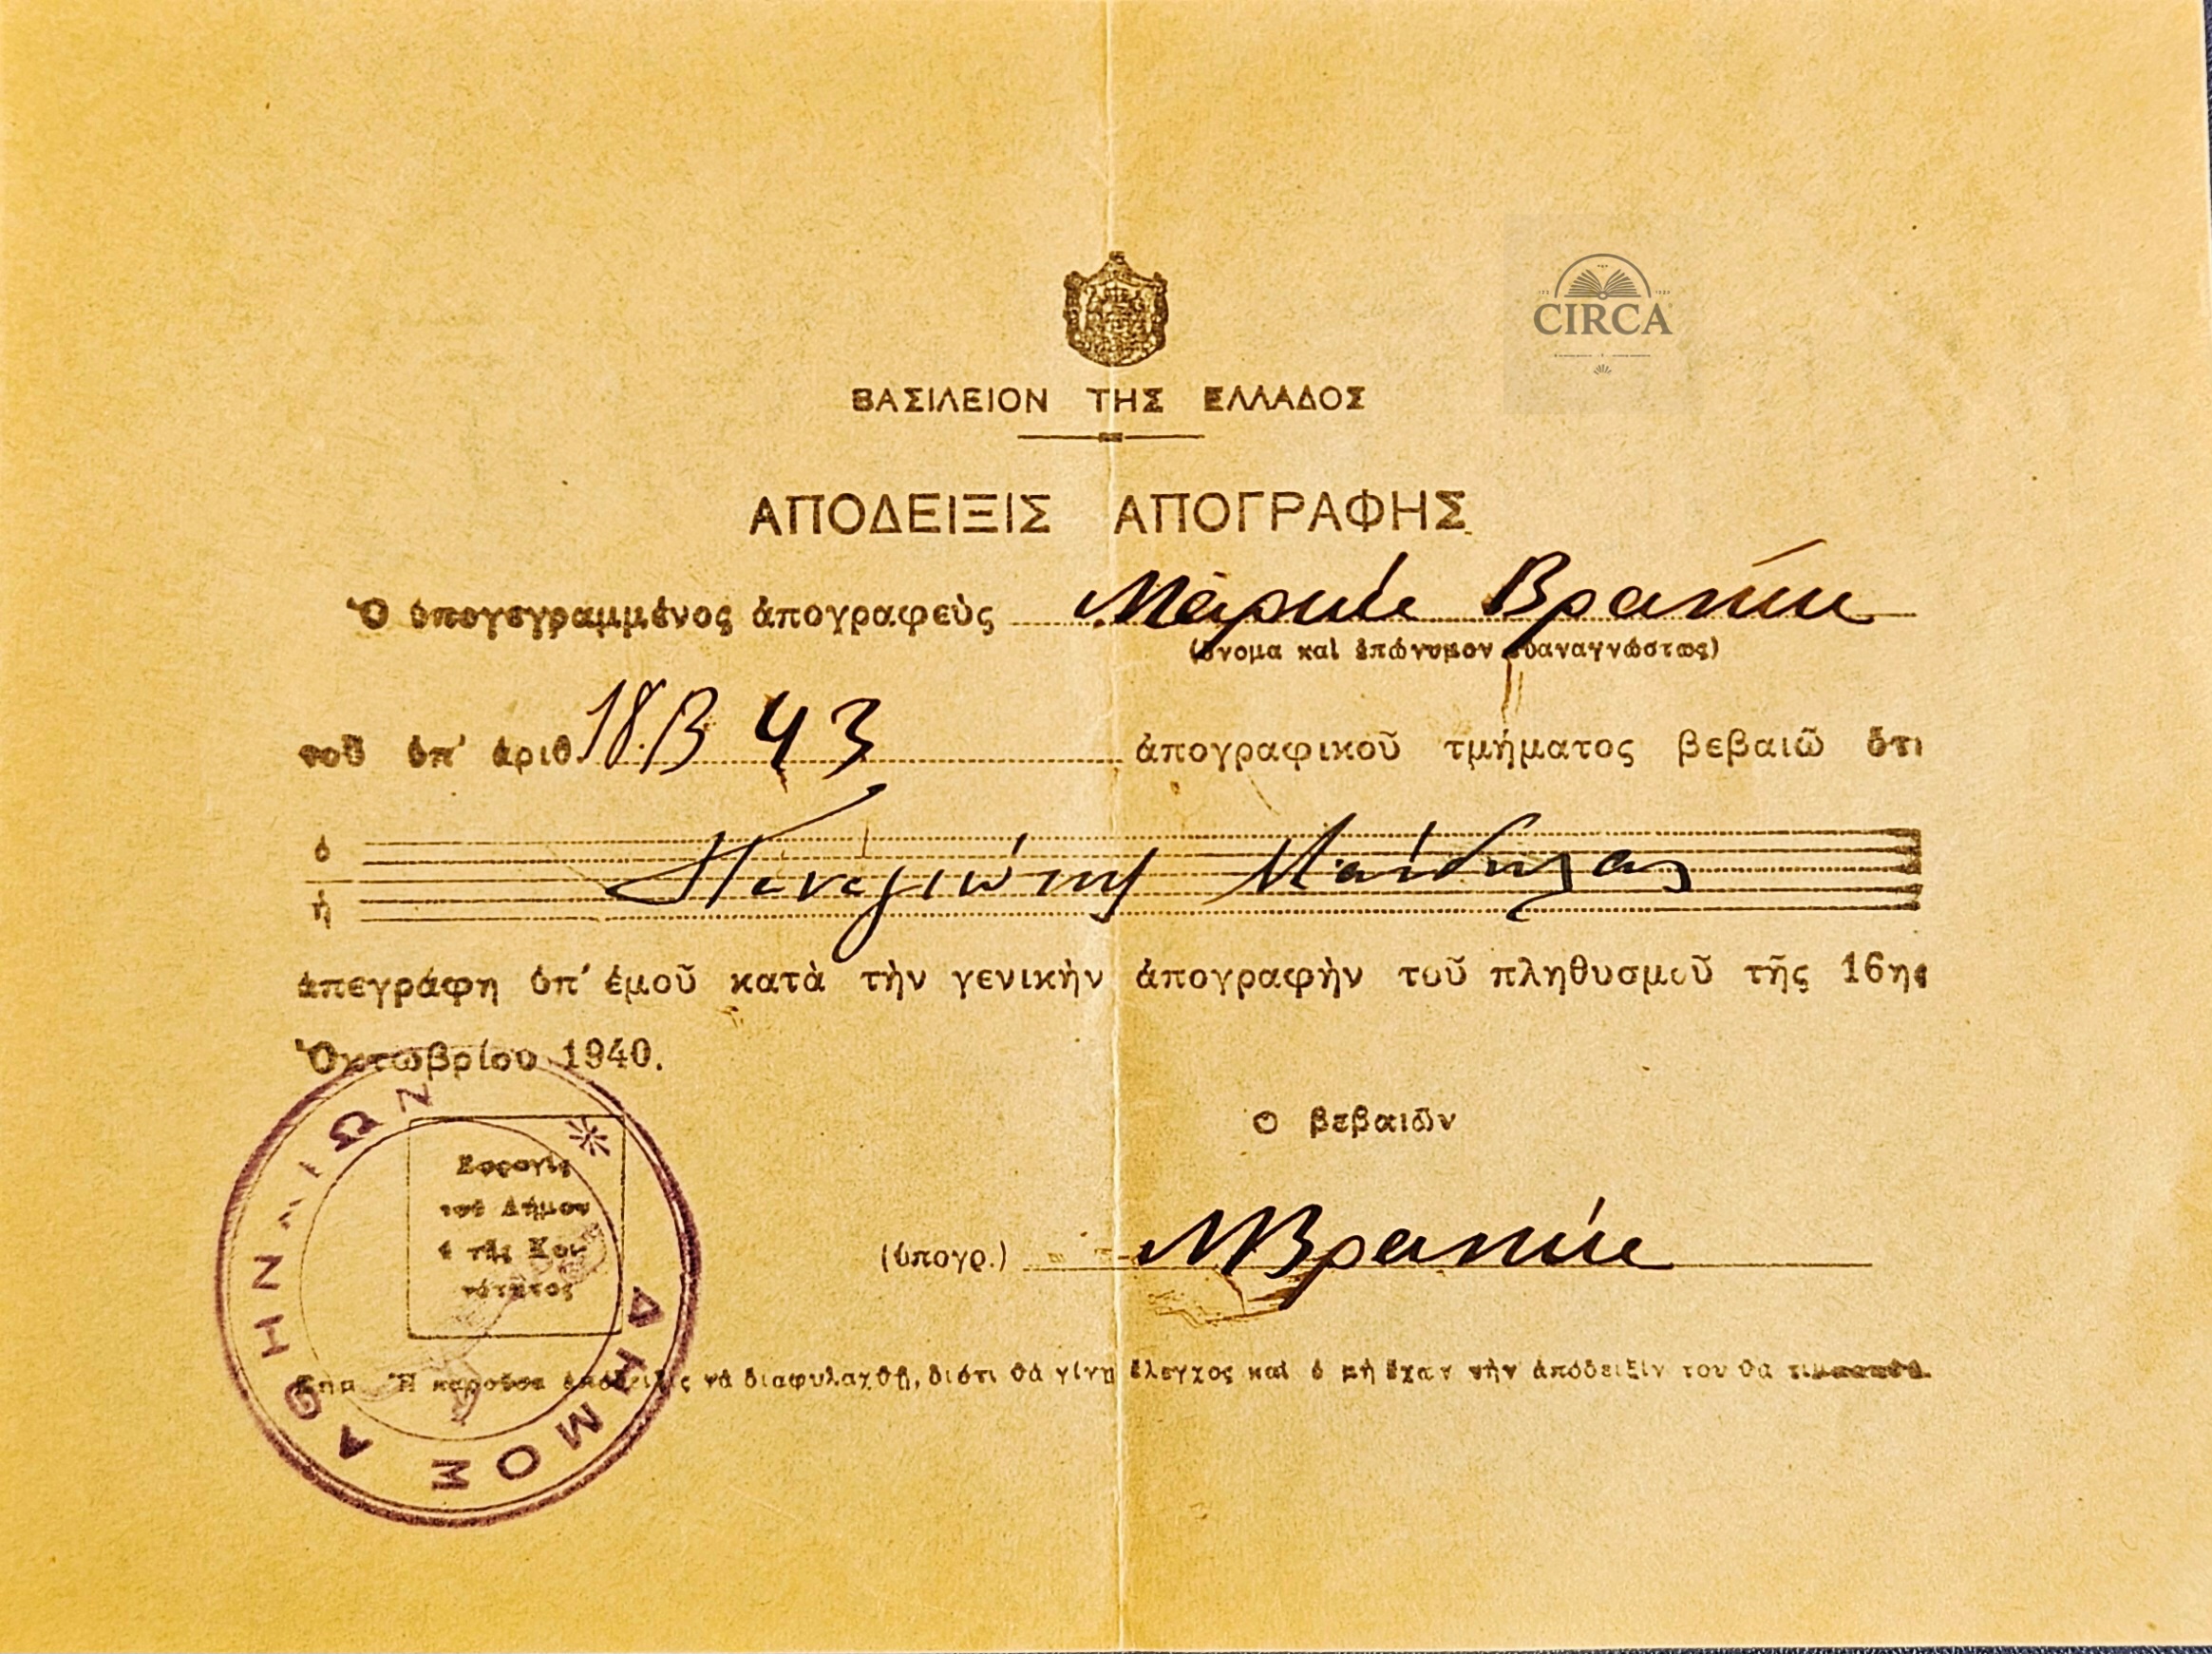 CIRCA
ΒΑΣΙΛΕΙΟΝ ΤΗΣ ΕΛΛΑΔΟΣ
ΑΠΟΔΕΙΞΙΣ ΑΠΟΓΡΑΦΗΣ
Ὁ ὑπογεγραμμένος ἀπογραφεὺς
(ὄνομα καὶ ἐπώνυμον εὐαναγνώστως)
τοῦ ὑπ' ἀριθ. 18.Β 43 ἀπογραφικοῦ τμήματος βεβαιῶ ὅτι
ὁ
ἡ
Παναγιώτης
ἀπεγράφη ὑπ' ἐμοῦ κατὰ τὴν γενικὴν ἀπογραφὴν τοῦ πληθυσμοῦ τῆς 16ης
Ὀκτωβρίου 1940.
Ὁ βεβαιῶν
(ὑπογρ.)
Σφραγὶς
τοῦ Δήμου
ἢ τῆς Κοι-
νότητος
ΔΗΜΟΣ ΑΘΗΝΑΙΩΝ
Σημ. Ἡ παροῦσα ἀπόδειξις νὰ διαφυλαχθῇ, διότι θὰ γίνῃ ἔλεγχος καὶ ὁ μὴ ἔχων τὴν ἀπόδειξίν του θὰ